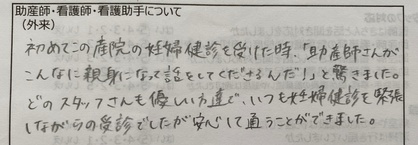 助産師・看護師・看護助手について
(外来)
初めてこの産院の妊婦健診を受けた時、「助産師さんが
こんなに親身になって話をしてくださるんだ!」と驚きました。
どのスタッフさんも優しい方達で、いつも妊婦健診を緊張
しながらの受診でしたが安心して通うことができました。